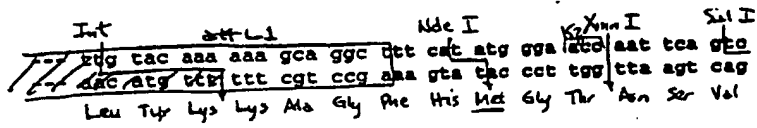 Int attL1 Nde I Kz Xmn I Sal I
--- ttg tac aaa aaa gca ggc ttt cat atg gga acc aat tca gtc
--- aac atg ttt ttt cgt ccg aaa gta tac cct tgg tta agt cag
Leu Tyr Lys Lys Ala Gly Phe His Met Gly Thr Asn Ser Val